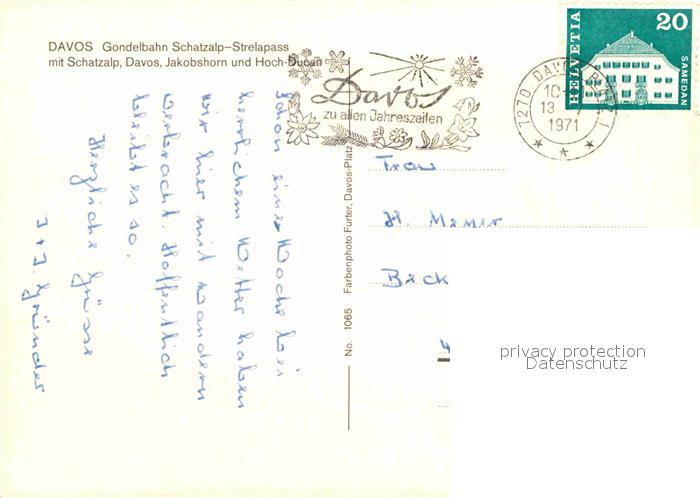 DAVOS Gondelbahn Schatzalp–Strelapass
mit Schatzalp, Davos, Jakobshorn und Hoch-Ducan
Davos
zu allen Jahreszeiten
7270 DAVOS PLATZ 1
10
13
1971
HELVETIA
20
SAMEDAN
Schon eine Woche bei
herrlichem Wetter haben
wir hier mit wandern
verbracht. Hoffentlich
bleibt es so.
Herzliche Grüsse
J + J. Gründer
No. 1065 Farbenphoto Furter, Davos-Platz
Frau
H.
Beck
privacy protection
Datenschutz